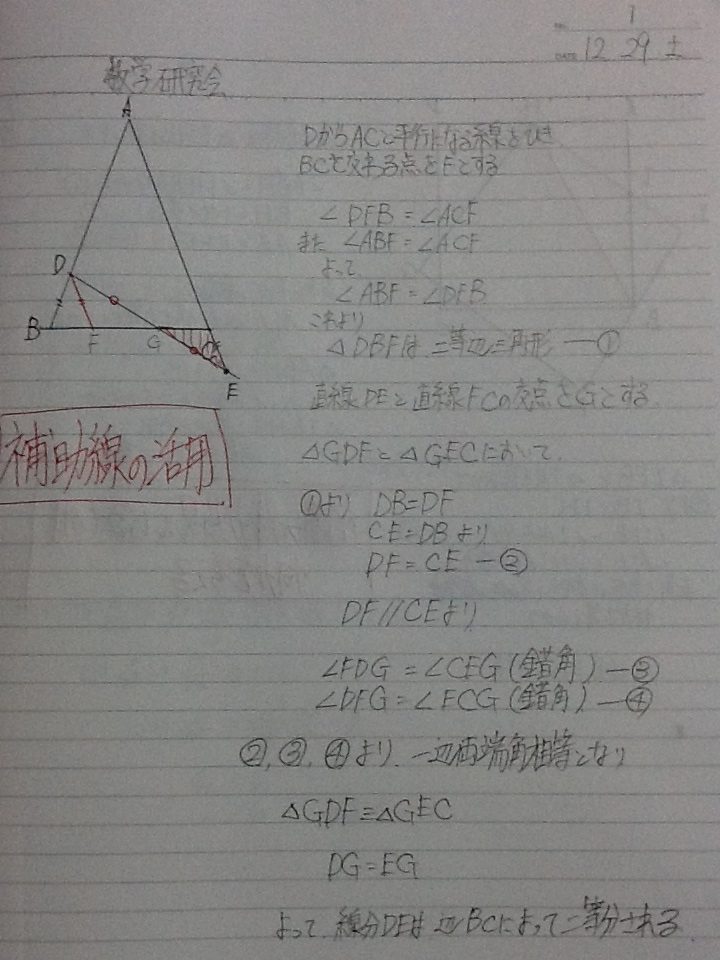 1
12 29 土
数学研究会
A
D
B
F
G
C
E
補助線の活用
DからACと平行になる線をひき
BCと交わる点をFとする
∠DFB = ∠ACF
また ∠ABF = ∠ACF
よって
∠ABF = ∠DFB
これより
△DBFは二等辺三角形 ―①
直線DEと直線FCの交点をGとする
△GDFと△GECにおいて.
①より DB=DF
CE=DBより
DF=CE ―②
DF//CEより
∠FDG = ∠CEG (錯角) ―③
∠DFG = ∠ECG (錯角) ―④
②, ③, ④より. 一辺両端角相等となり
△GDF≡△GEC
DG=EG
よって. 線分DEは辺BCによって二等分される